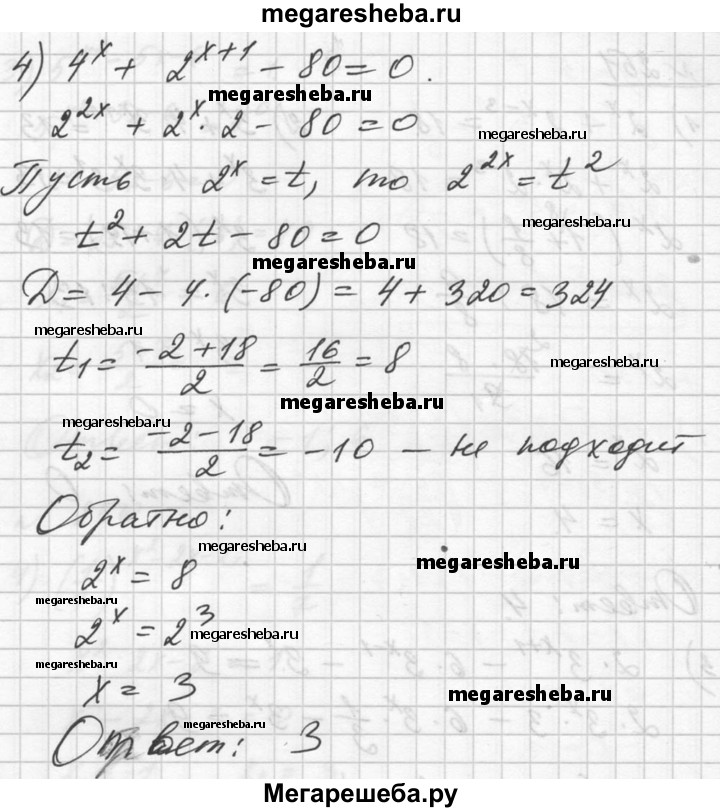 megaresheba.ru
4) 4^x + 2^{x+1} - 80 = 0.
megaresheba.ru
2^{2x} + 2^x · 2 - 80 = 0
megaresheba.ru
Пусть 2^x = t, то 2^{2x} = t^2
megaresheba.ru
t^2 + 2t - 80 = 0
megaresheba.ru
Д = 4 - 4 · (-80) = 4 + 320 = 324
megaresheba.ru
t_1 = \frac{-2+18}{2} = \frac{16}{2} = 8
megaresheba.ru
megaresheba.ru
megaresheba.ru
t_2 = \frac{-2-18}{2} = -10 - не подходит
Обратно:
megaresheba.ru
megaresheba.ru
2^x = 8
megaresheba.ru
2^x = 2^3
megaresheba.ru
megaresheba.ru
x = 3
megaresheba.ru
megaresheba.ru
Ответ: 3
Мегарешеба.ру